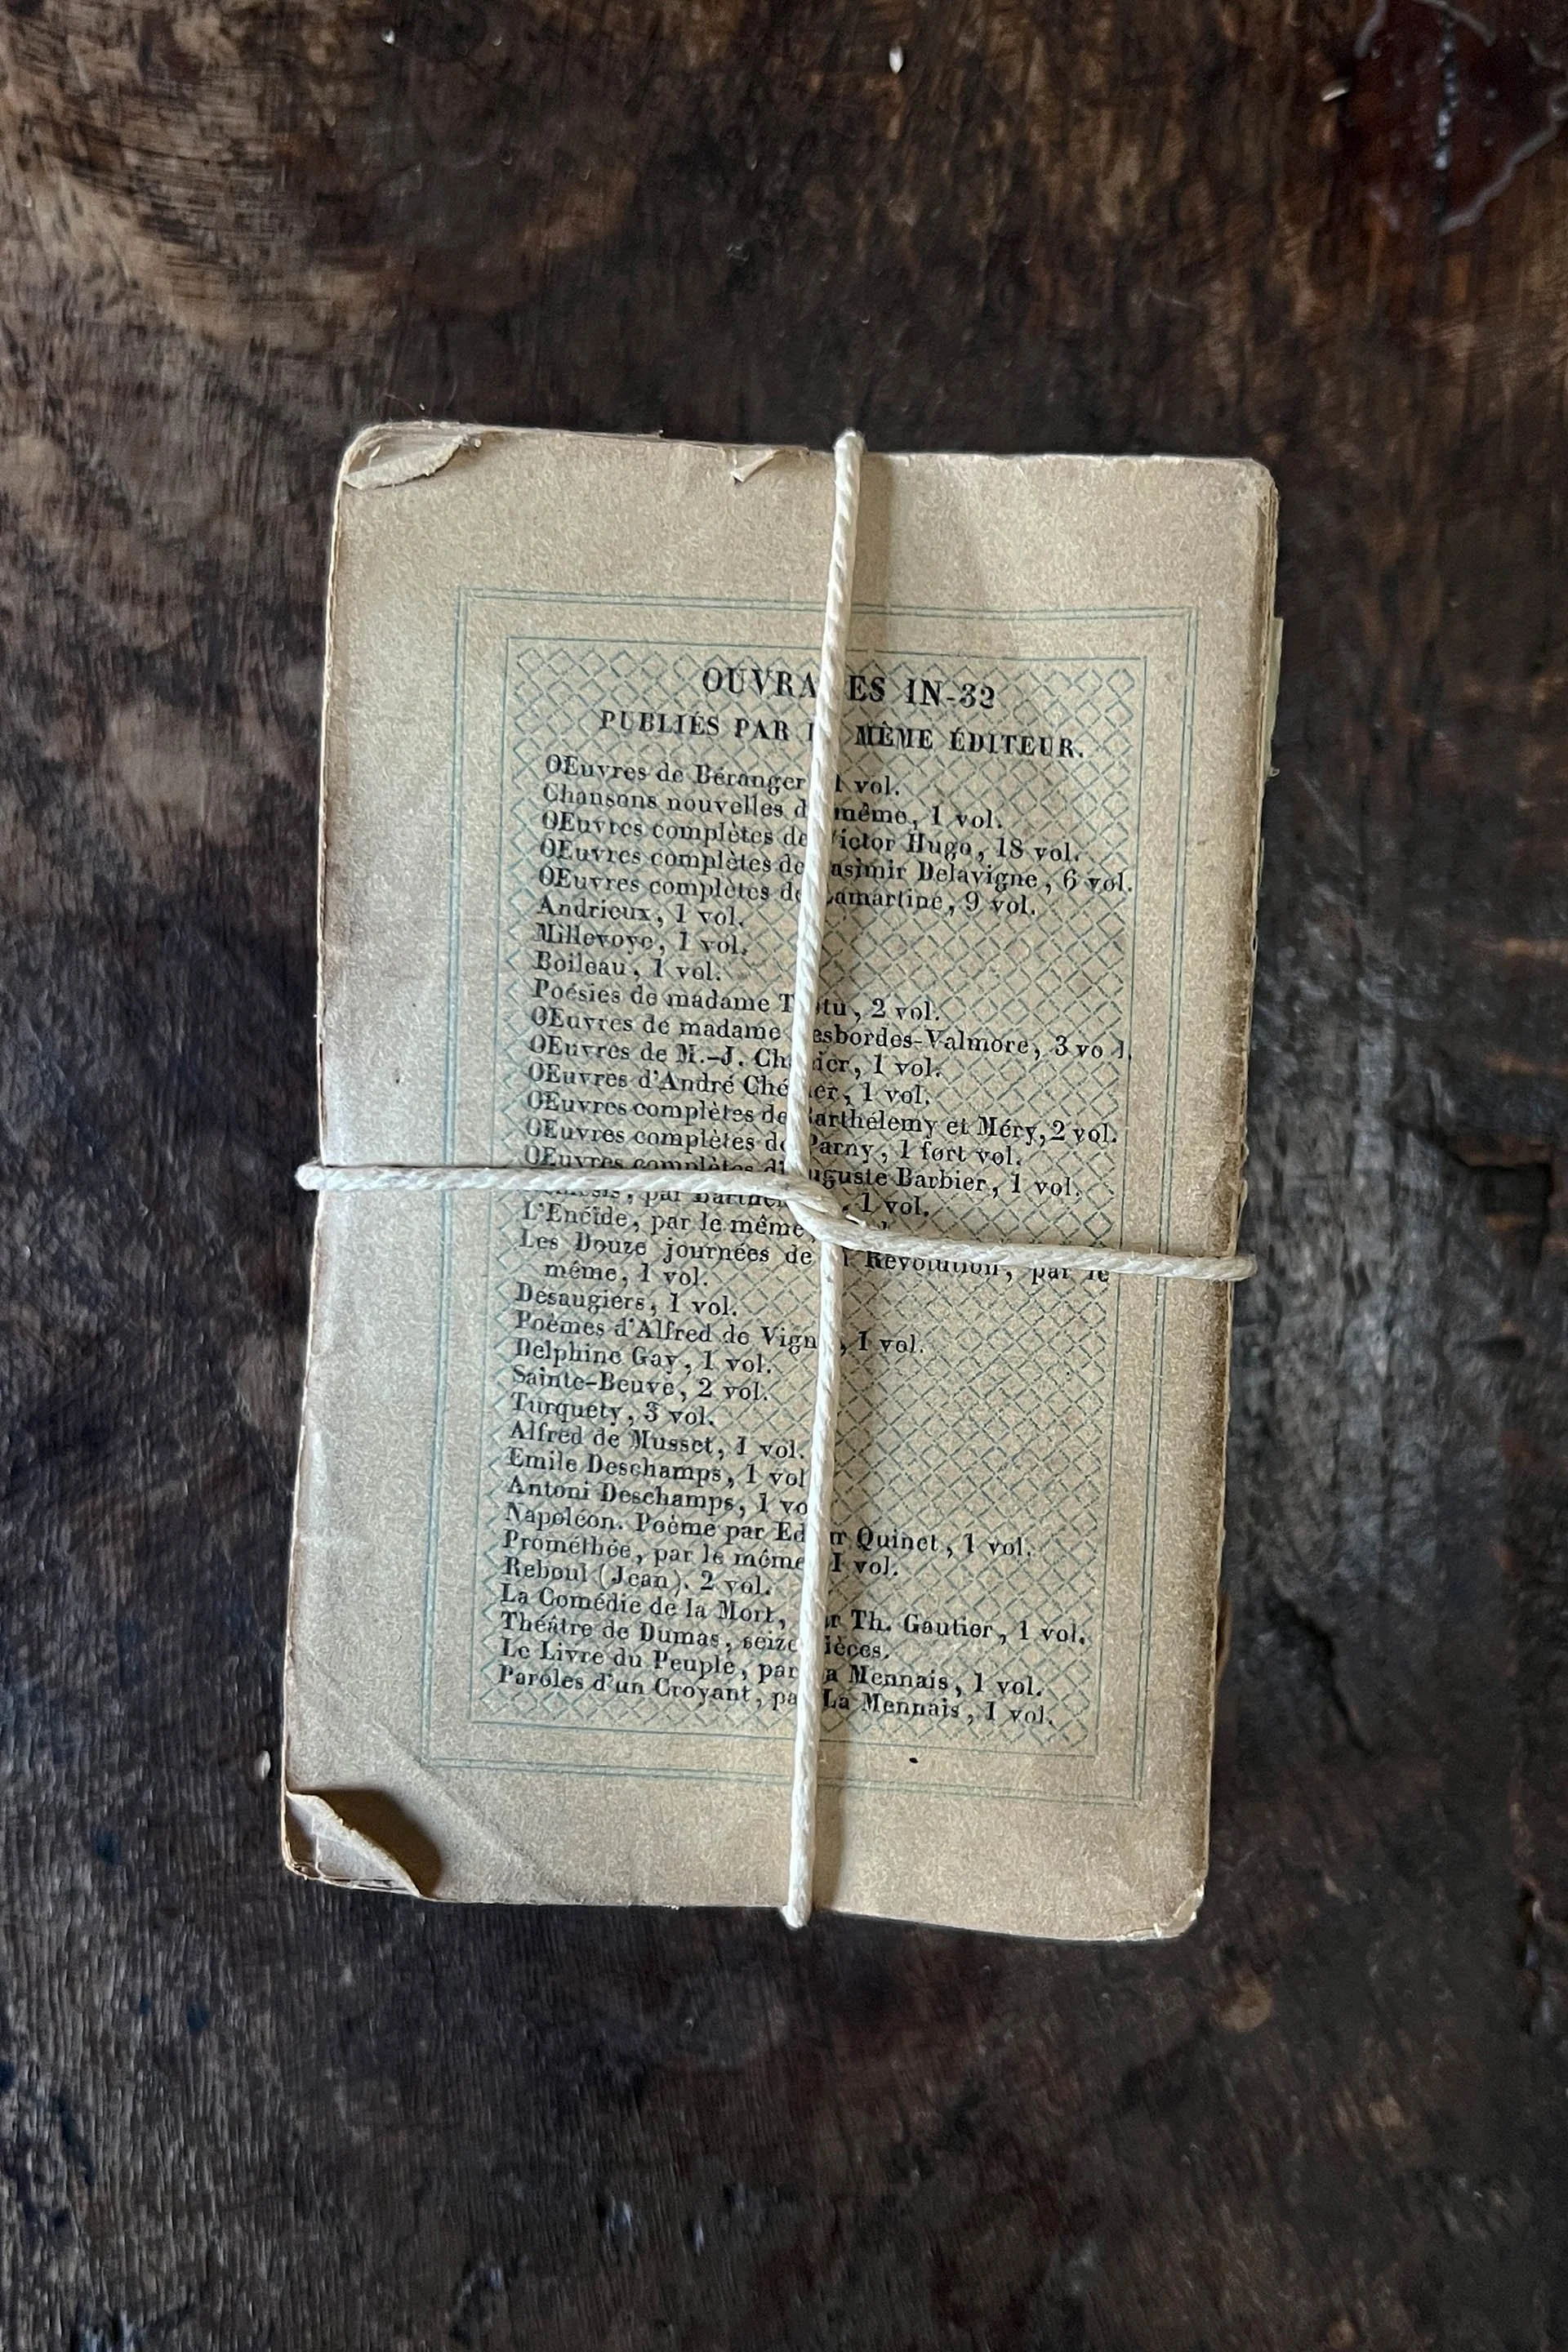 OUVRAGES IN-32
PUBLIÉS PAR LE MÊME ÉDITEUR.
Œuvres de Béranger 1 vol.
Chansons nouvelles du même, 1 vol.
Œuvres complètes de Victor Hugo, 18 vol.
Œuvres complètes de Casimir Delavigne, 6 vol.
Œuvres complètes de Lamartine, 9 vol.
Andrieux, 1 vol.
Millevoye, 1 vol.
Boileau, 1 vol.
Poésies de madame Tastu, 2 vol.
Œuvres de madame Desbordes-Valmore, 3 vol.
Œuvres de M.-J. Chénier, 1 vol.
Œuvres d'André Chénier, 1 vol.
Œuvres complètes de Barthélemy et Méry, 2 vol.
Œuvres complètes de Parny, 1 fort vol.
Œuvres complètes d'Auguste Barbier, 1 vol.
par Barthélemy, 1 vol.
L'Enéide, par le même,
Les Douze journées de la Révolution, par le
même, 1 vol.
Désaugiers, 1 vol.
Poèmes d'Alfred de Vigny, 1 vol.
Delphine Gay, 1 vol.
Sainte-Beuve, 2 vol.
Turquety, 3 vol.
Alfred de Musset, 1 vol.
Emile Deschamps, 1 vol
Antoni Deschamps, 1 vo
Napoléon. Poème par Edgar Quinet, 1 vol.
Prométhée, par le même 1 vol.
Reboul (Jean). 2 vol.
La Comédie de la Mort, par Th. Gautier, 1 vol.
Théâtre de Dumas, seize pièces.
Le Livre du Peuple, par La Mennais, 1 vol.
Paroles d'un Croyant, par La Mennais, 1 vol.